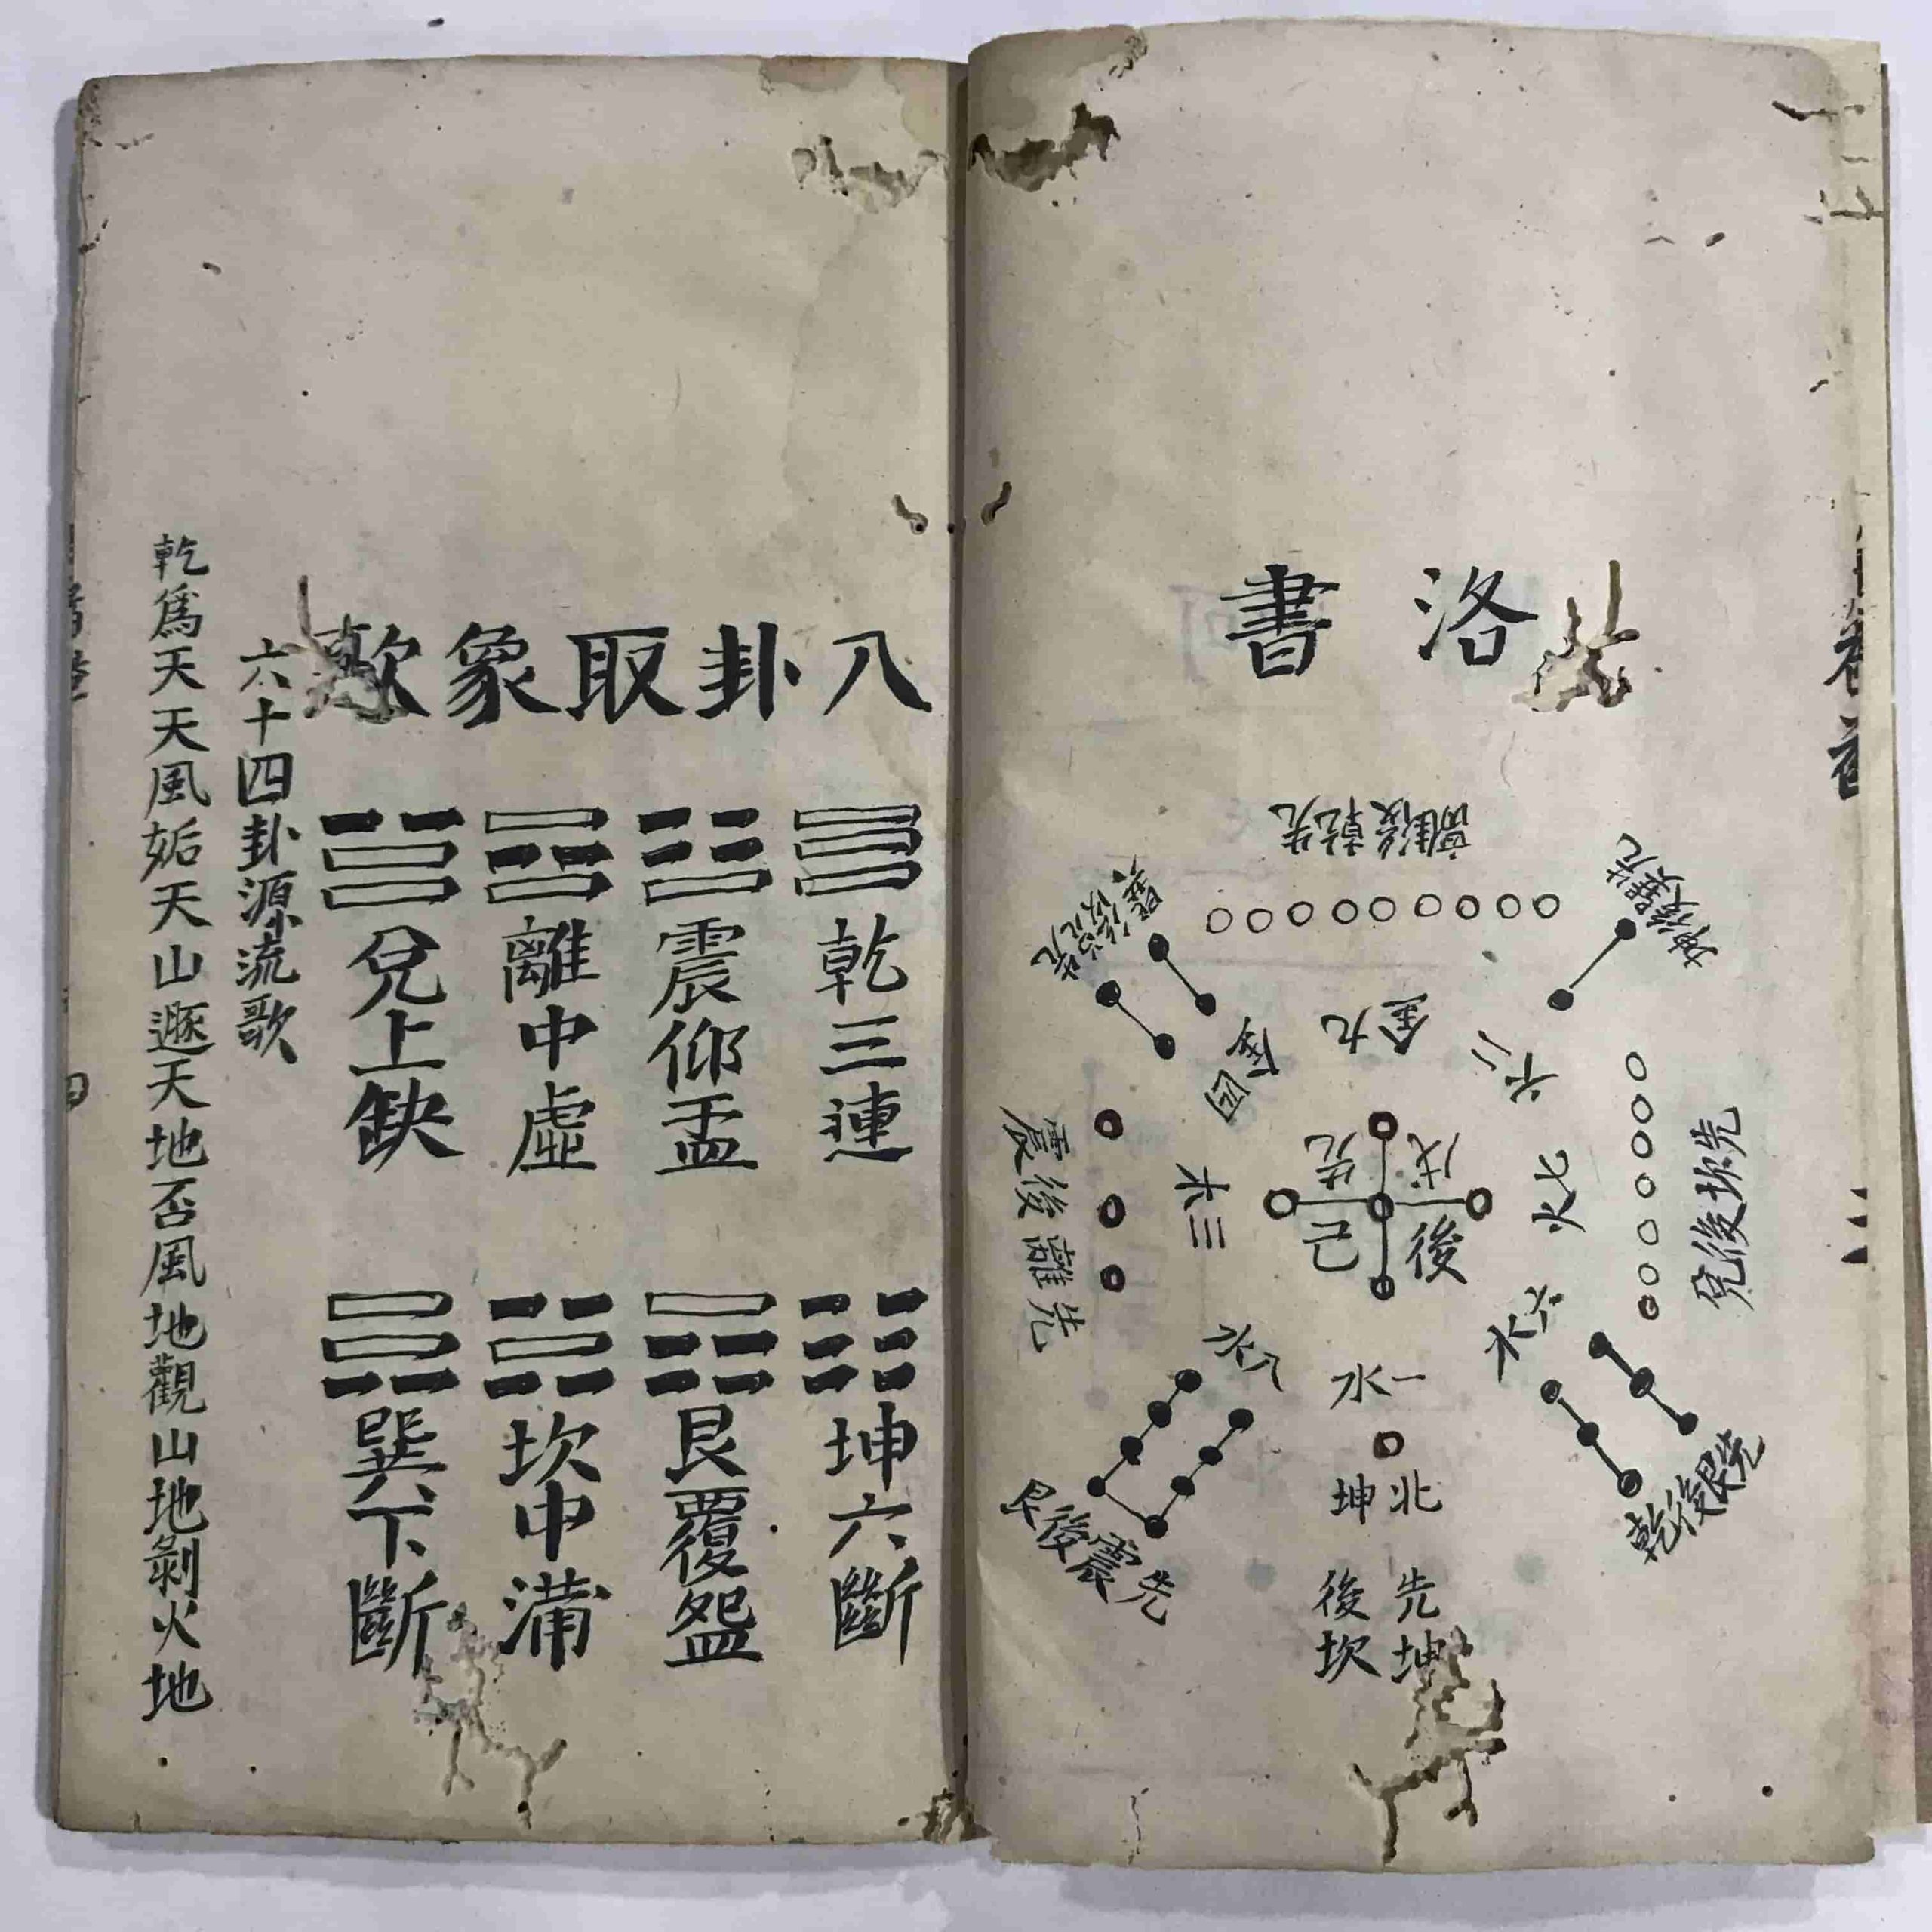 洛書
離後乾先
坤後巽先
巽後兌先
金九
四金
火二
火七
兌後坎先
三木
震後離先
先
戊
己
後
水六
乾後艮先
木八
艮後震先
水一
北
坤
先坤
後坎
八卦取象歌
乾三連
震仰盂
離中虛
兌上缺
坤六斷
艮覆盌
坎中滿
巽下斷
六十四卦源流歌
乾爲天天風姤天山遯天地否風地觀山地剝火地